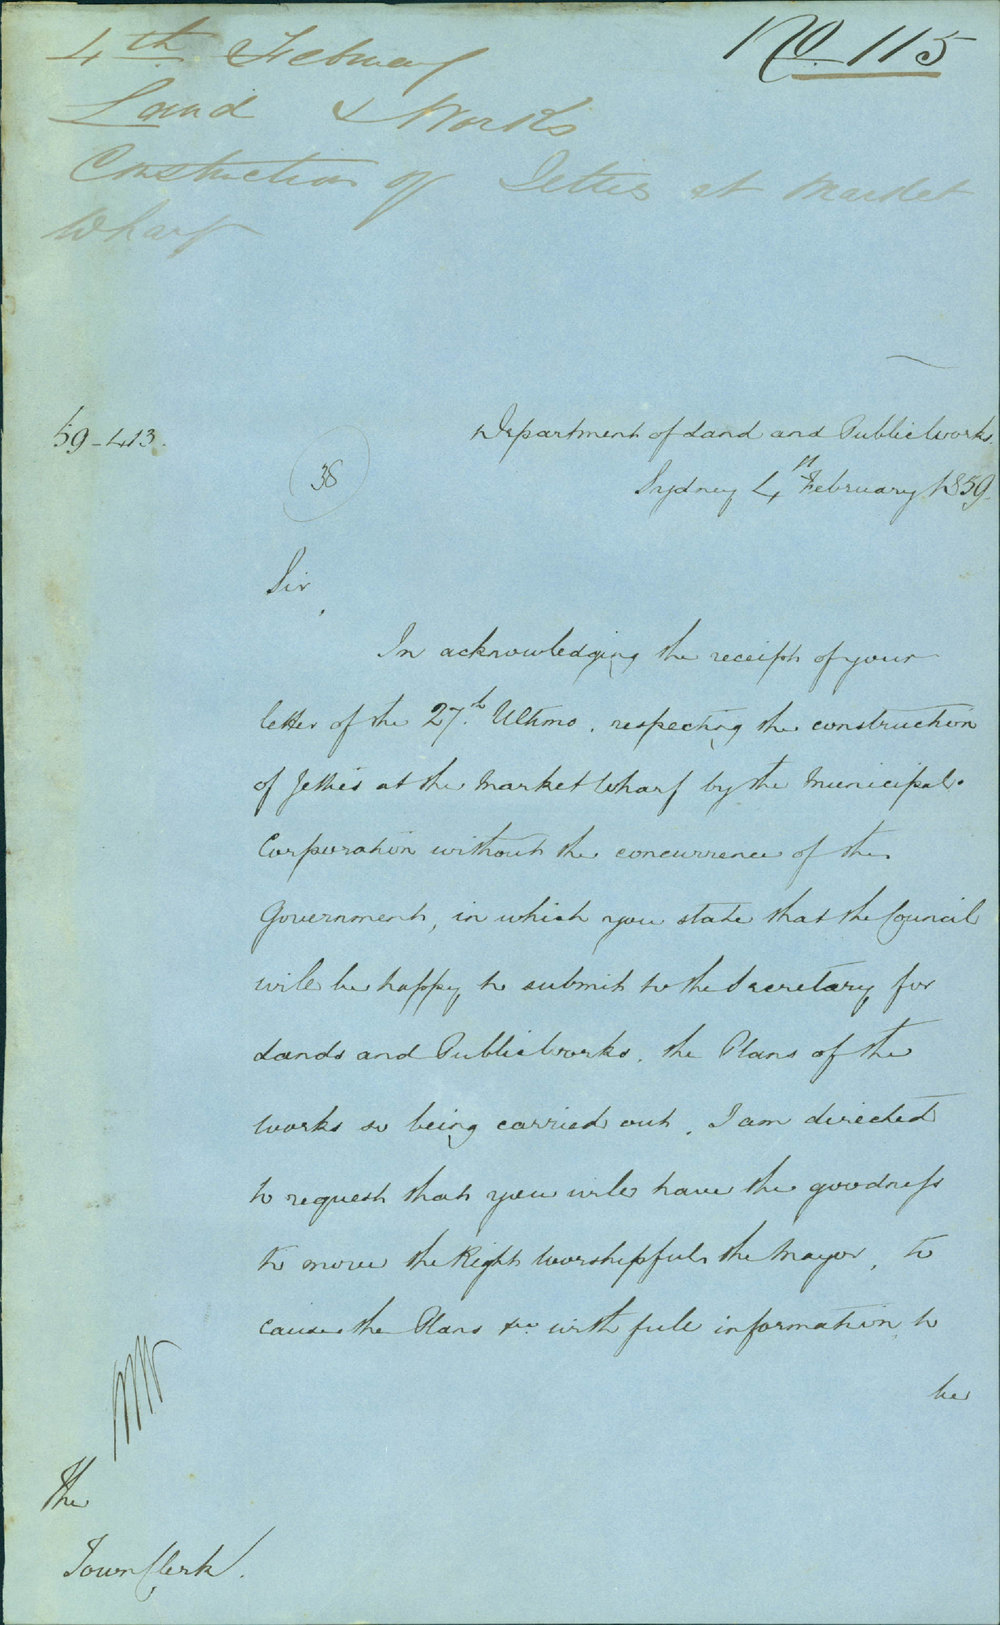 4th February
Land & Works
Construction of Jetties at Market
Wharf
No. 115
59-413.
38
Department of Land and Public Works.
Sydney 4th February 1859.
Sir,
In acknowledging the receipt of your
letter of the 27th Ultimo, respecting the construction
of Jetties at the Market Wharf by the Municipal
Corporation without the concurrence of the
Government, in which you state that the Council
will be happy to submit to the Secretary for
Lands and Public Works, the Plans of the
works so being carried out, I am directed
to request that you will have the goodness
to move the Right Worshipful the Mayor, to
cause the Plans &c. with full information to
be
The
Town Clerk.